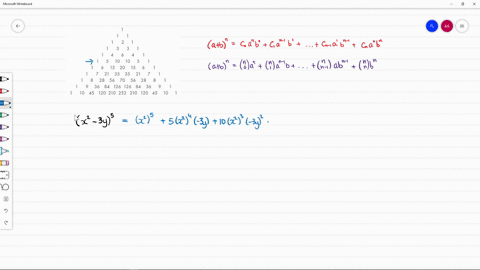 Microsoft Whiteboard
1
1 1
1 2 1
1 3 3 1
1 4 6 4 1
1 5 10 10 5 1
1 6 15 20 15 6 1
1 7 21 35 35 21 7 1
1 8 28 56 70 56 28 8 1
1 9 36 84 126 126 84 36 9 1
1 10 45 120 210 252 210 120 45 10 1
(a+b)ⁿ = C₀aⁿb⁰ + C₁aⁿ⁻¹b¹ + ... + Cₙ₋₁a¹bⁿ⁻¹ + Cₙa⁰bⁿ
(a+b)ⁿ = (ⁿ₀)aⁿ + (ⁿ₁)aⁿ⁻¹b + ... + (ⁿₙ₋₁)abⁿ⁻¹ + (ⁿₙ)bⁿ
(x² - 3y)⁵ = (x²)⁵ + 5(x²)⁴(-3y) + 10(x²)³(-3y)²